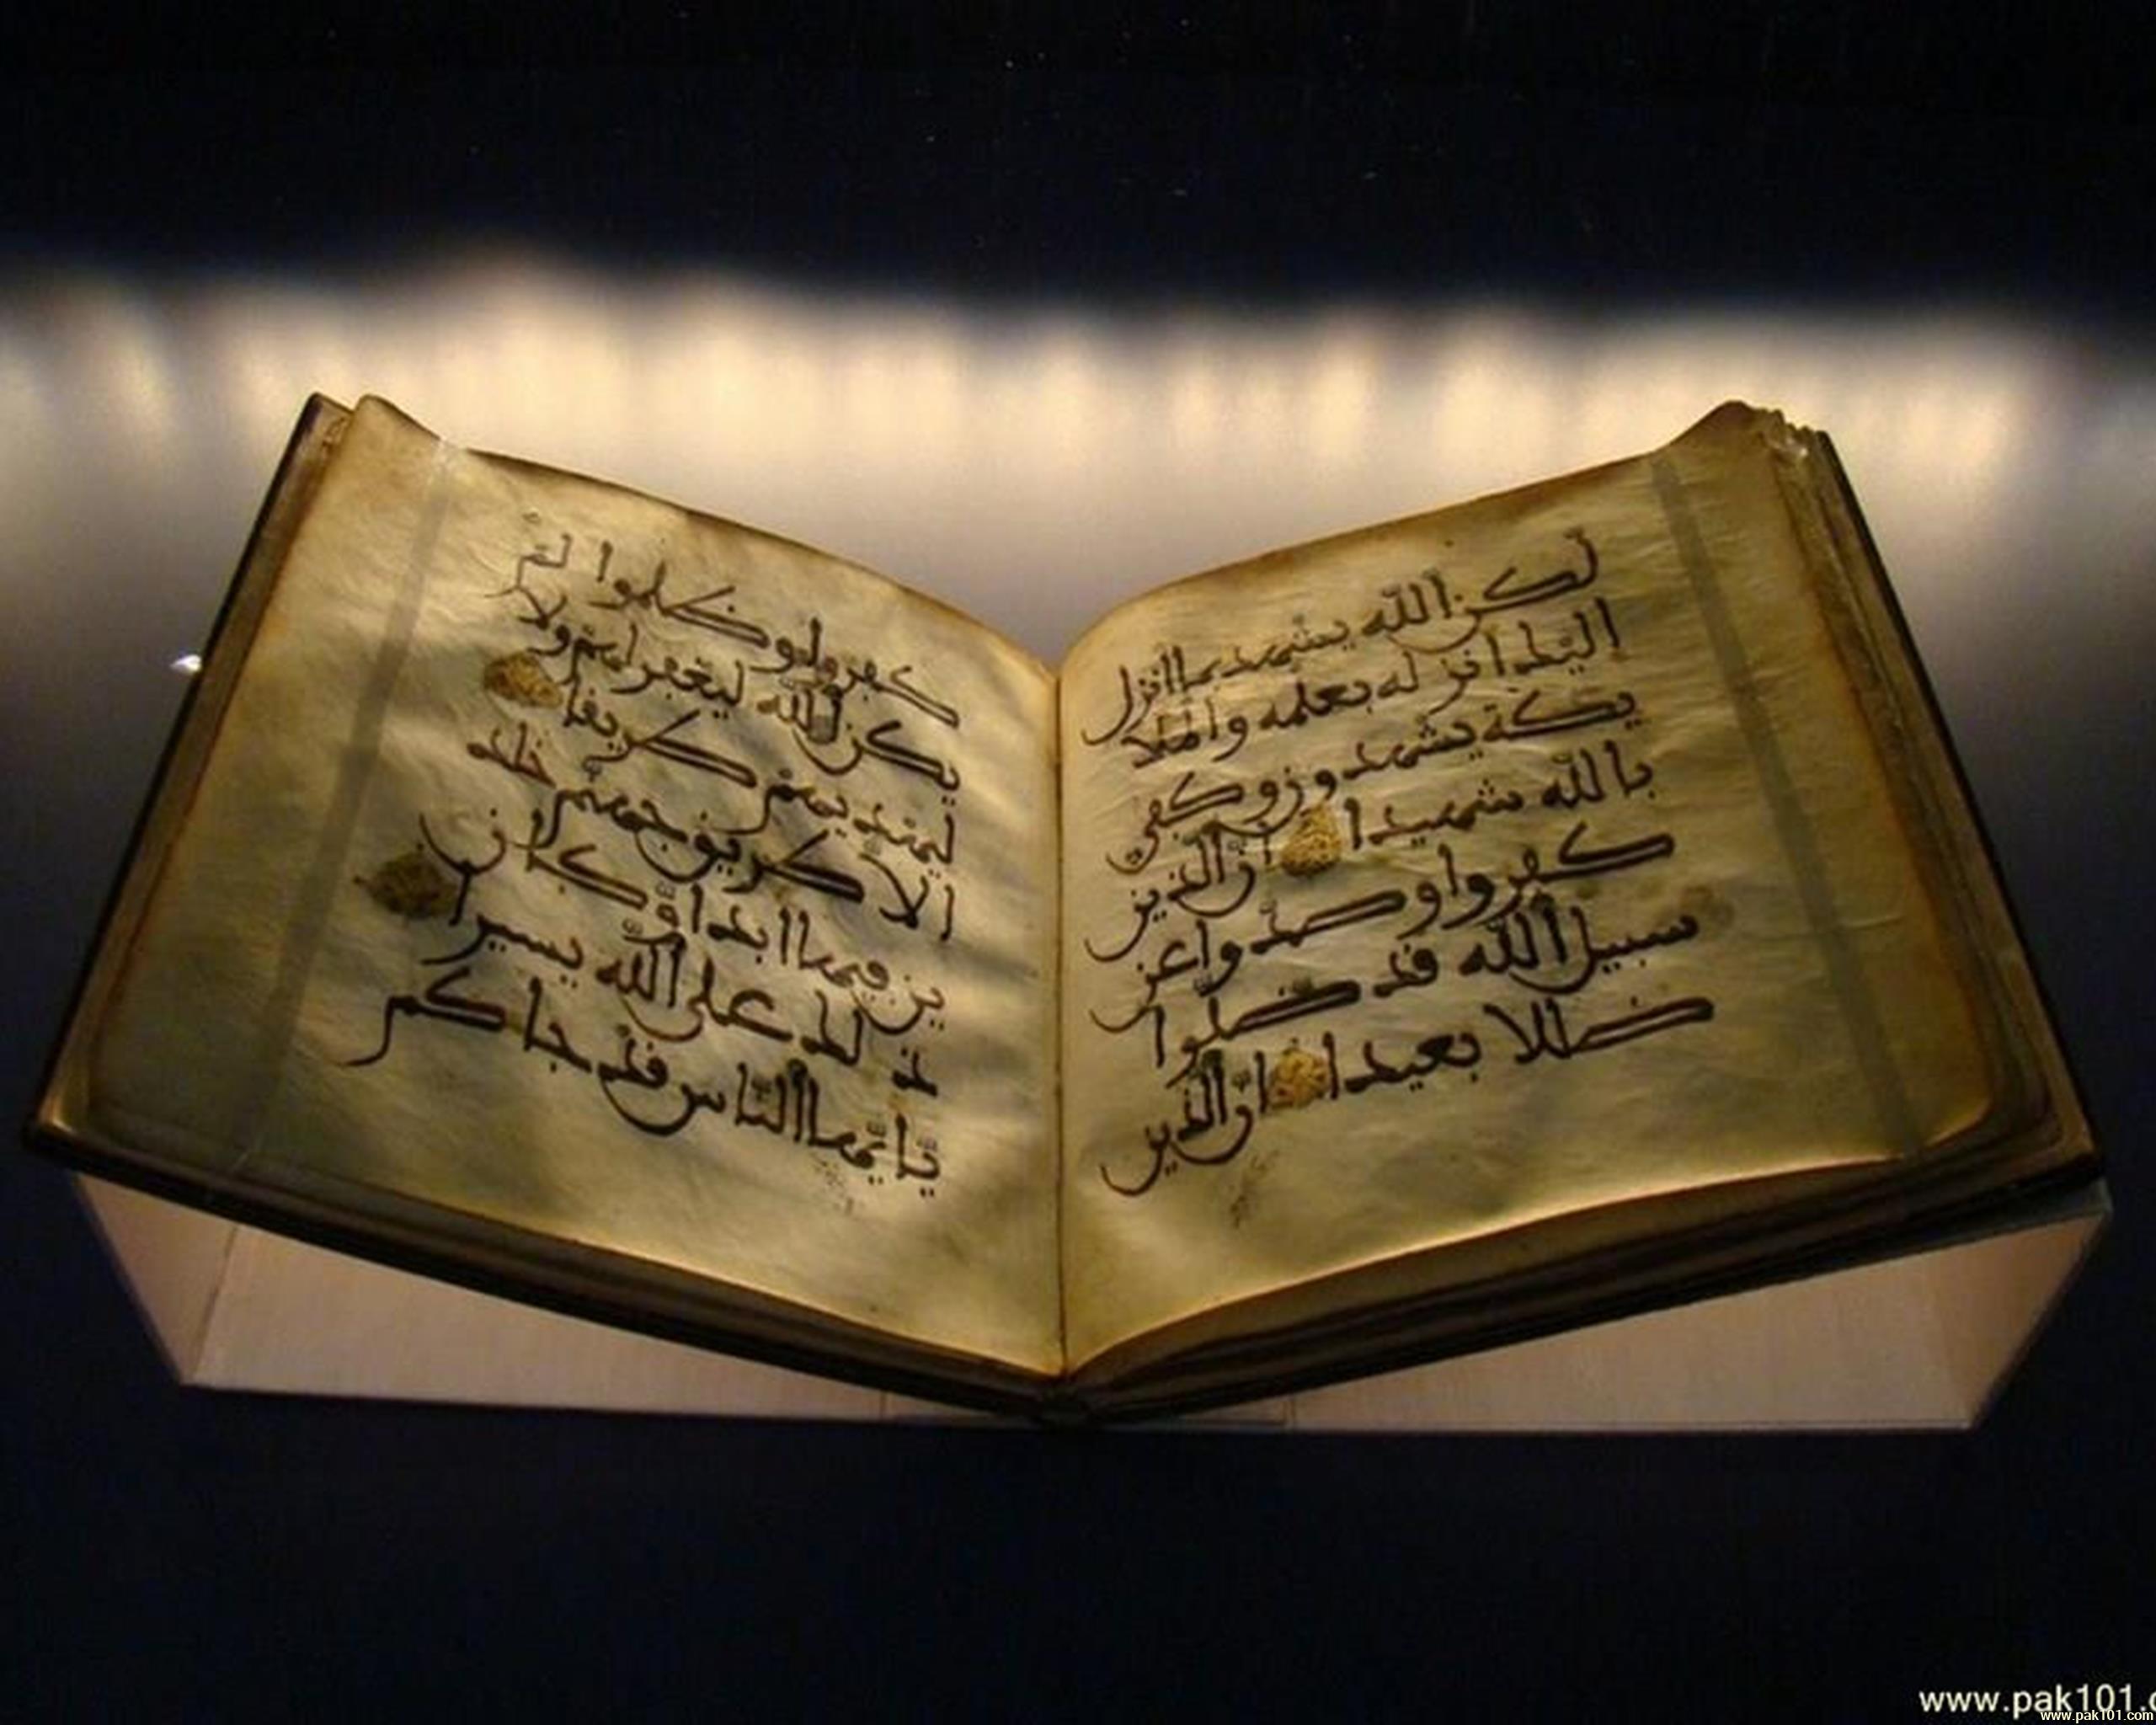 لكن الله يشهد بما انزل
اليك انزله بعلمه والملا
يكة يشهدون وكفى
بالله شهيدا ان الذين
كفروا وصدوا عن
سبيل الله قد ضلوا
ضللا بعيدا ان الذين
كفروا وظلموا لم
يكن الله ليغفر لهم ولا
ليهديهم طريقا
الا طريق جهنم خلد
ين فيها ابدا وكان
ذلك على الله يسيرا
يايها الناس قد جاكم
www.pak101.c
www.pak101.com